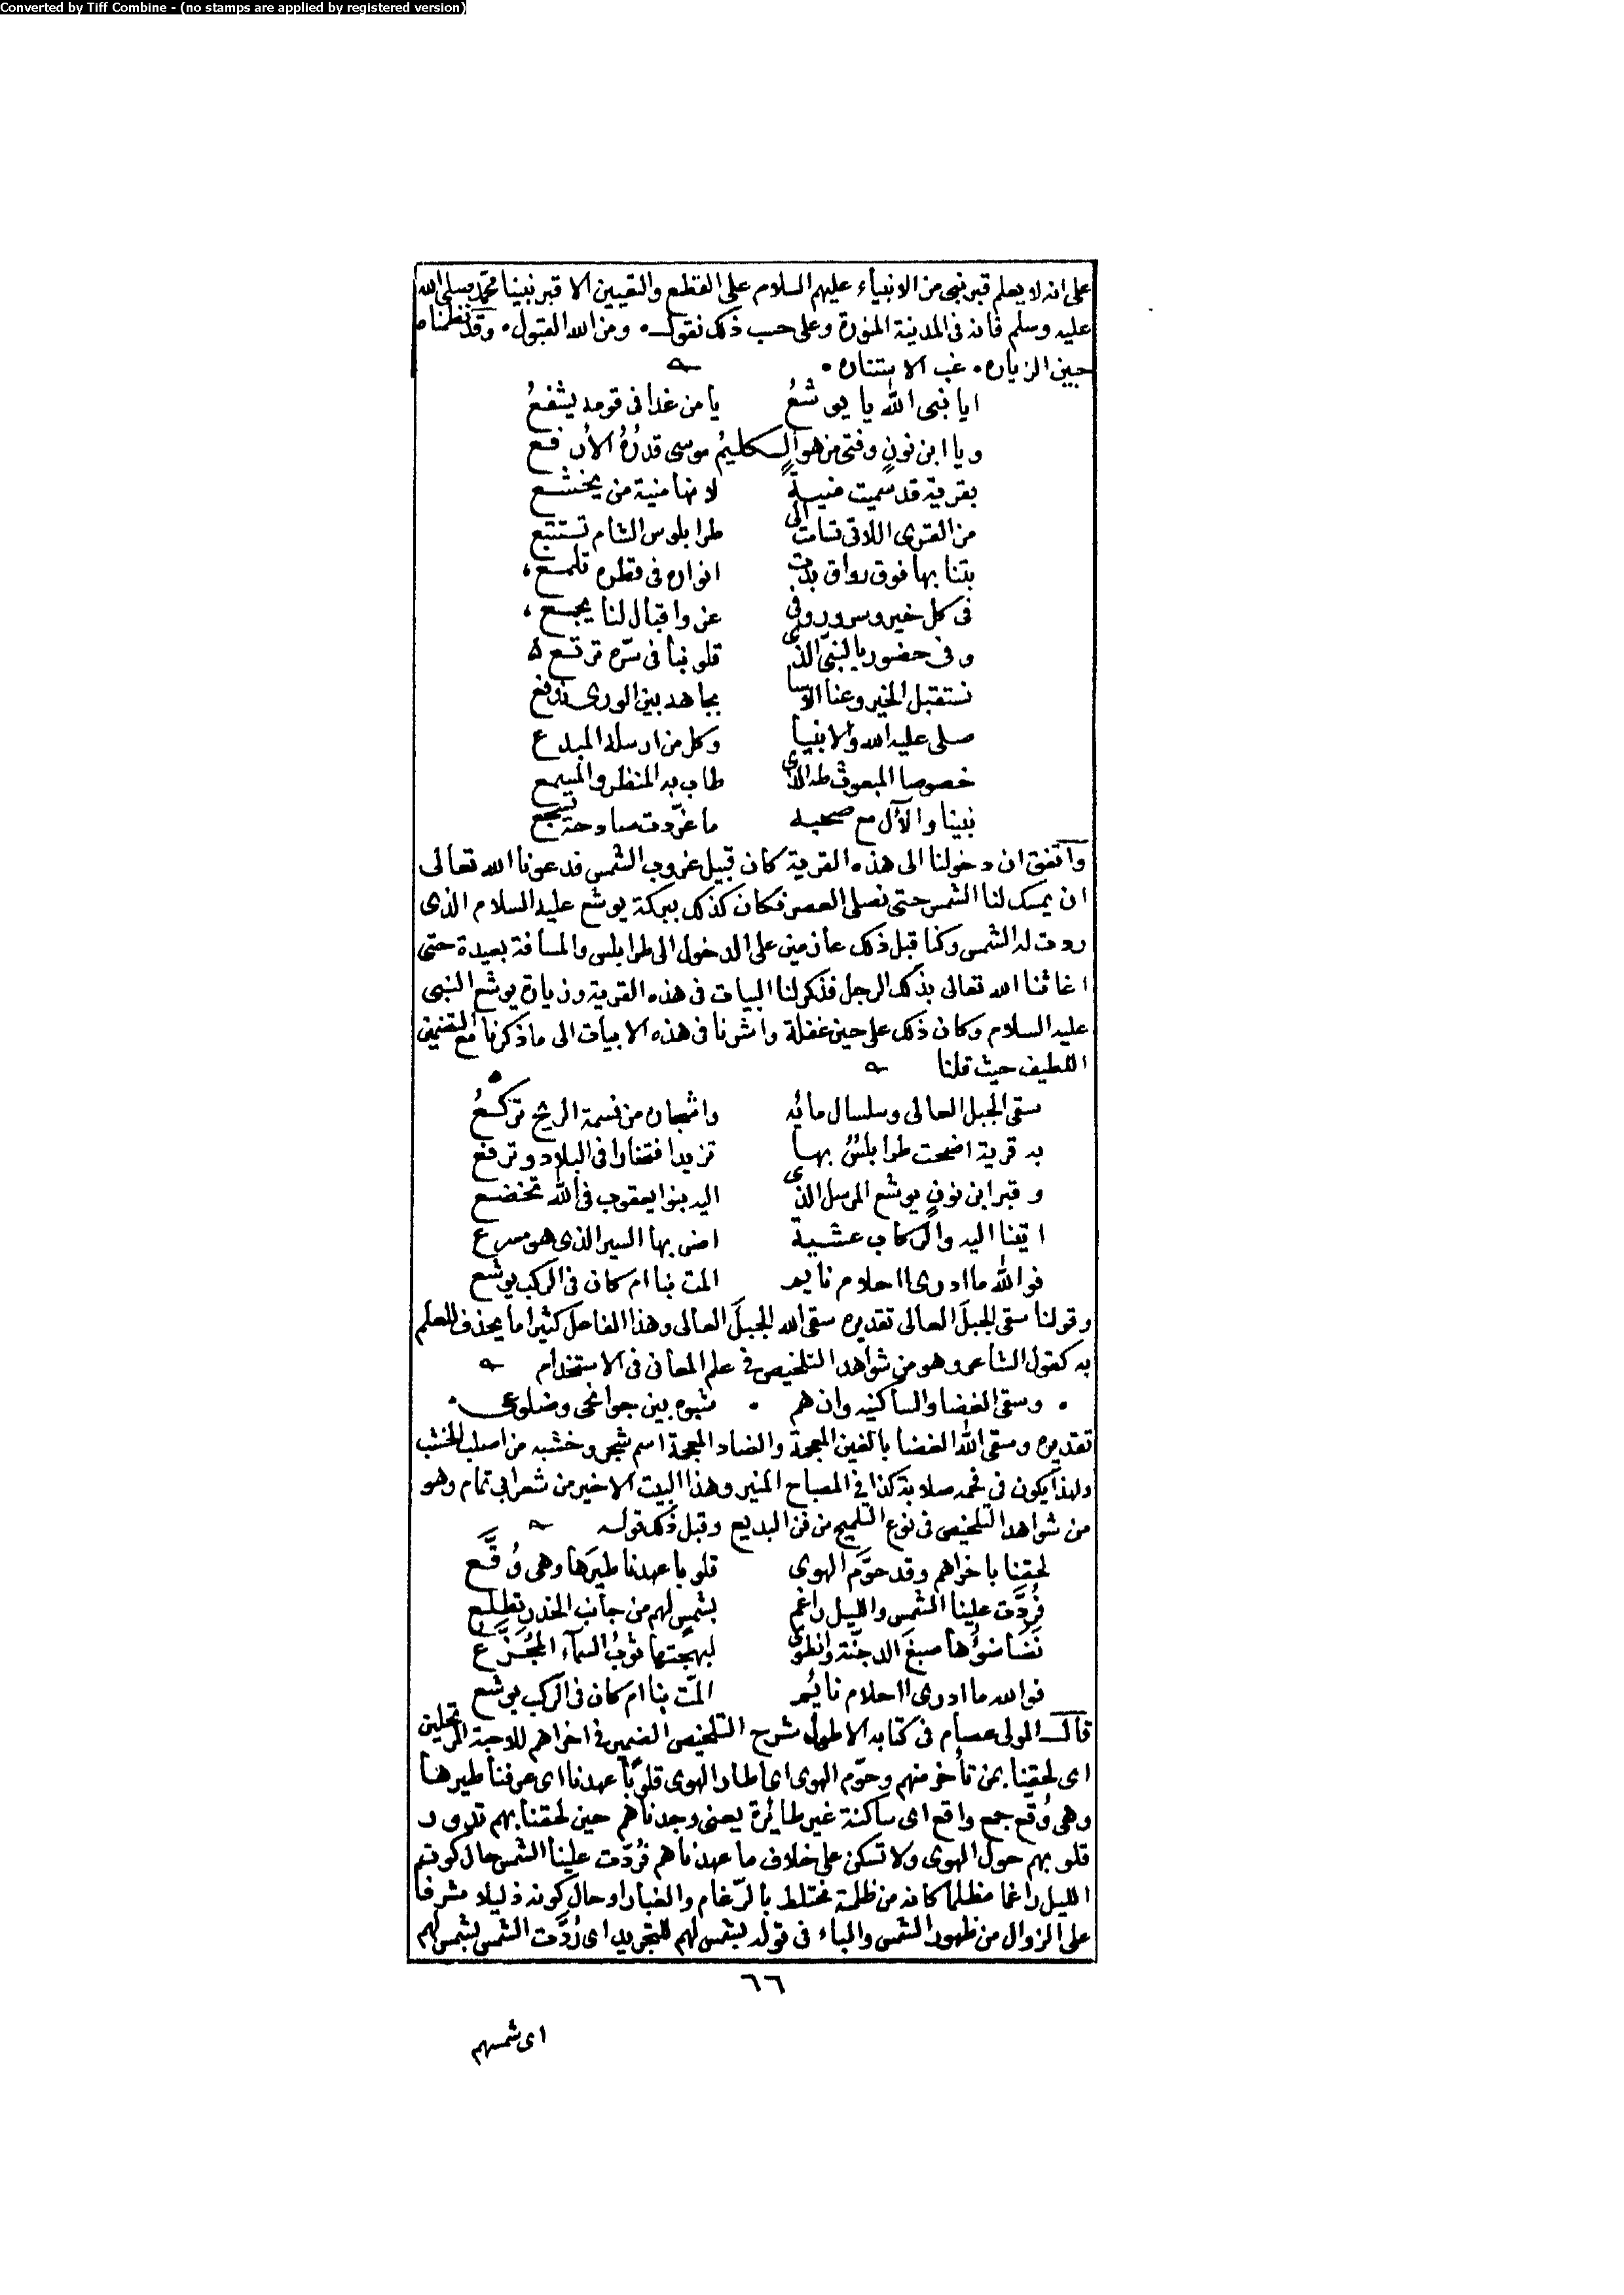 Converted by Tiff Combine - (no stamps are applied by registered version)
على انه لا يعلم قبر نبى من الانبياء عليهم السلام على القطع والتعيين الا قبر نبينا محمد صلى الله
عليه وسلم فانه فى المدينة المنورة وعلى حسب ذلك نقول ۰ ومن الله القبول ۰ وقد نظمنا
حين الزياره ۰ غب الاستناره ۰
ايا نبى الله يا يوشعُ يا من غدا فى قومه يشفعُ
ويا ابن نون وفتى من هو الكليمُ موسى قدرُهُ الأرفع
بقرية قد سميت منيةً لانها منية من يخشع
من القرى اللاتى تسامت الى طرابلوس الشام تستتبع
بتنا بها فوق رواق بدت انواره فى قطره تلمع
فى كل خير وسرور وفى عز واقبال لنا يجمع
وفى حضور بالنبىّ الذى قلوبنا فى سّره ترتع
نستقبل الخير وعنا الاسا بجاهه بين الورى ندفع
صلى عليه الله والانبيا وكل من ارسله المبدع
خصوصا المبعوث طه الذى طاب به المنظر والمسمع
نبينا والآل مع صحبه ما غرّدت صادحة تسجع
واتفق ان دخولنا الى هذه القرية كان قبيل غروب الشمس فدعونا الله تعالى
ان يمسك لنا الشمس حتى نصلى العصر فكان كذلك ببركة يوشع عليه السلام الذى
ردت له الشمس وكنا قبل ذلك عازمين على الدخول الى طرابلس والمسافة بعيدة حتى
اغاثنا الله تعالى بذلك الرجل فذكر لنا البيات فى هذه القرية وزيارة يوشع النبى
عليه السلام وكان ذلك على حين غفلة واشرنا فى هذه الابيات الى ما ذكرنا مع التضمين
اللطيف حيث قلنا
سقى الجبل العالى وسلسال مائه واشجان من نسمة الريح تركعُ
به قرية اضحت طرابلسُ بها تزيد افتخارا فى البلاد وترفع
وقبر ابن نونٍ يوشع المرسل الذى اليه بنوا يعقوب فى الله تخضع
اتينا اليه والركاب عشية اضر بها السير الذى هو مسرع
فوالله ما ادرى ااحلام نايم المت بنا ام كان فى الركب يوشع
وقولنا سقى الجبلَ العالى تقديره سقى الله الجبلَ العالى وهذا الفاعل كثيرا ما يحذف للعلم
به كقول الشاعر وهو من شواهد التلخيص فى علم المعانى فى الاستخدام
۰ وسقى الغضا والساكنيه وان هم ۰ شبوه بين جوانحى وضلوعى ۰
تقديره وسقى الله الغضا بالغين المعجمة والضاد المعجمة اسم شجر وخشبه من اصلب الخشب
ولهذا يكون فى فحمه صلابة كذا فى المصباح المنير وهذا البيت الاخير من شعر ابى تمام وهو
من شواهد التلخيص فى نوع التلميح من فن البديع وقبل ذلك قوله
لحقنا باخراهم وقد حوّم الهوى قلوبا عهدنا طيرَها وهى وُقّع
فرُدّت علينا الشمس والليل راغم بشمسٍ لهم من جانب الخدر تطلع
نضا ضوؤها صبغ الدجنّة وانطوى لبهجتها ثوبُ السمآء المجُزّع
فوالله ما ادرى ااحلام نائم المّت بنا ام كان فى الركب يوشع
قال المولى عصام فى كتابه الاطول شرح التلخيص الضمير فى اخراهم للاحبة المرتحلين
اى لحقنا بمن تأخر منهم وحوّم الهوى اى اطار الهوى قلوبًا عهدنا اى عرفنا طيرها
وهى وُقّع جمع واقع اى ساكنة غير طايرة يعنى وجدناهم حين لحقنا بهم تدور
قلوبهم حول الهوى ولا تسكن على خلاف ما عهدناهم فرُدّت علينا الشمس حال كون
الليل راغما مظلما كانه من ظلمة مختلط بالرّغام والغبار او حال كونه ذليلا مشرفا
على الزوال من ظهور الشمس والباء فى قوله بشمس لهم للتجريد اى رُدّت الشمس بشمس لهم
٦٦
اى شمسهم